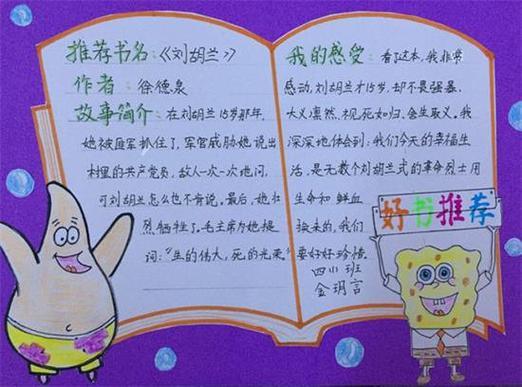 推荐书名:《刘胡兰》
作者:徐德泉
故事简介:在刘胡兰15岁那年,
她被匪军抓住了,军官威胁她说出
村里的共产党员,敌人一次一次地问,
可刘胡兰怎么也不肯说。最后,她壮
烈牺牲了。毛主席为她提
词:“生的伟大,死的光荣。”
我的感受:看了这本,我非常
感动,刘胡兰才15岁,却不畏强暴,
大义凛然,视死如归,舍生取义。我
深深地体会到:我们今天的幸福生
活,是无数个刘胡兰式的革命烈士用
生命和鲜血
换来的,我们
要好好珍惜。
四小班
金玥言
好书推荐